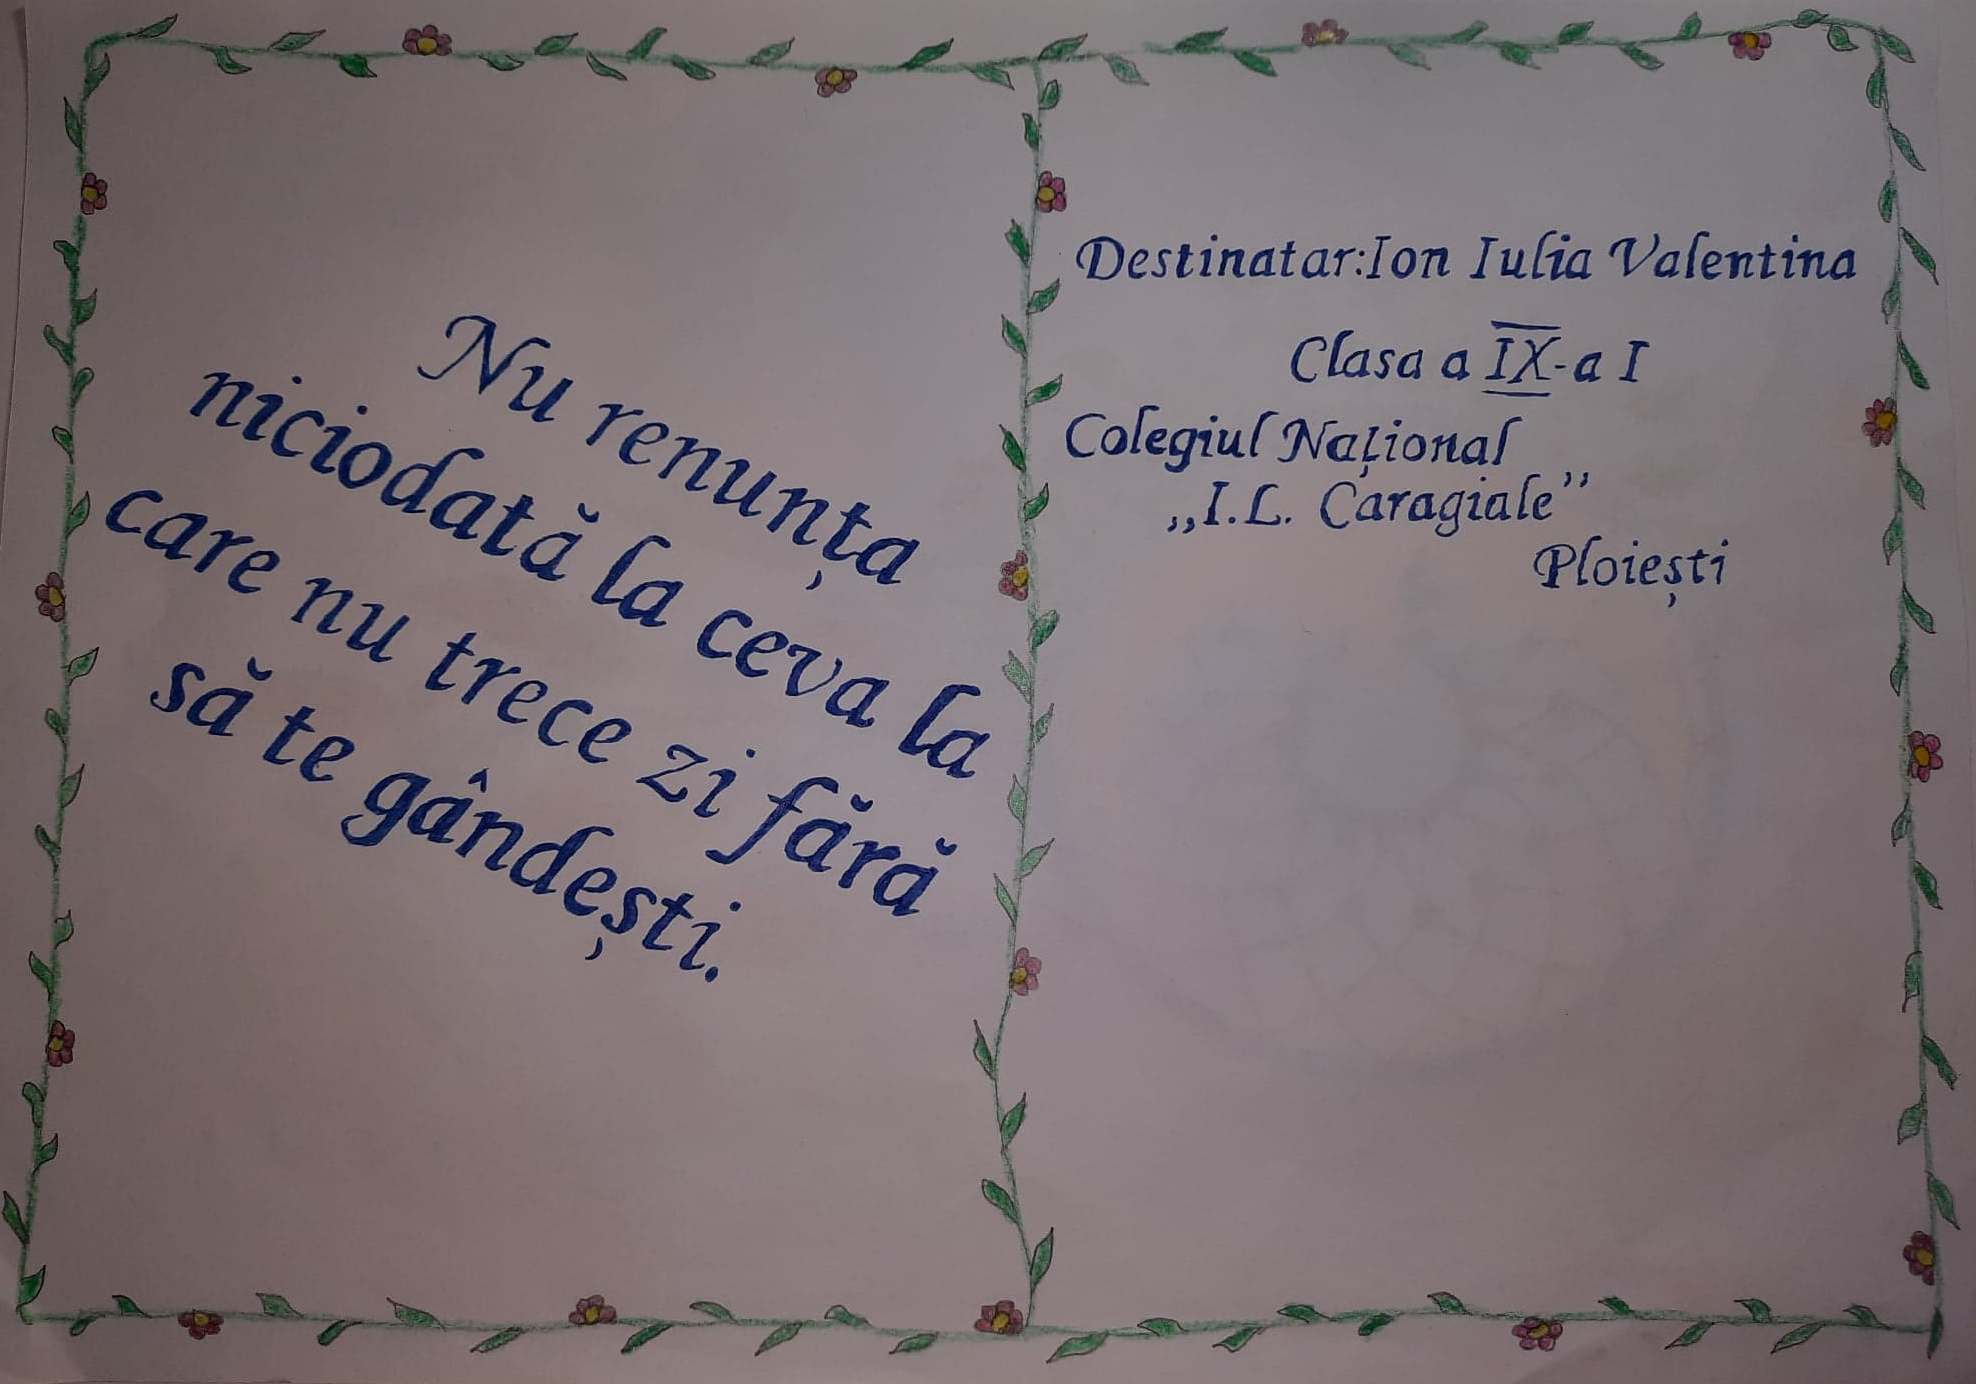 Nu renunța
niciodată la ceva la
care nu trece zi fără
să te gândești.
Destinatar:Ion Iulia Valentina
Clasa a IX-a I
Colegiul Național
,,I.L. Caragiale”
Ploiești